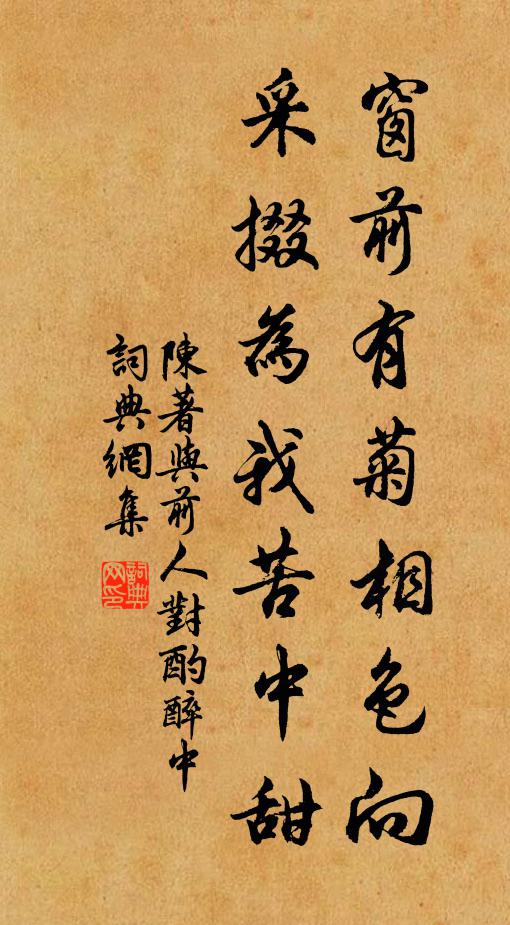 窗前有菊相色向
采掇為我苦中甜
陳著與前人對酌醉中
詞典網集
詞典网印